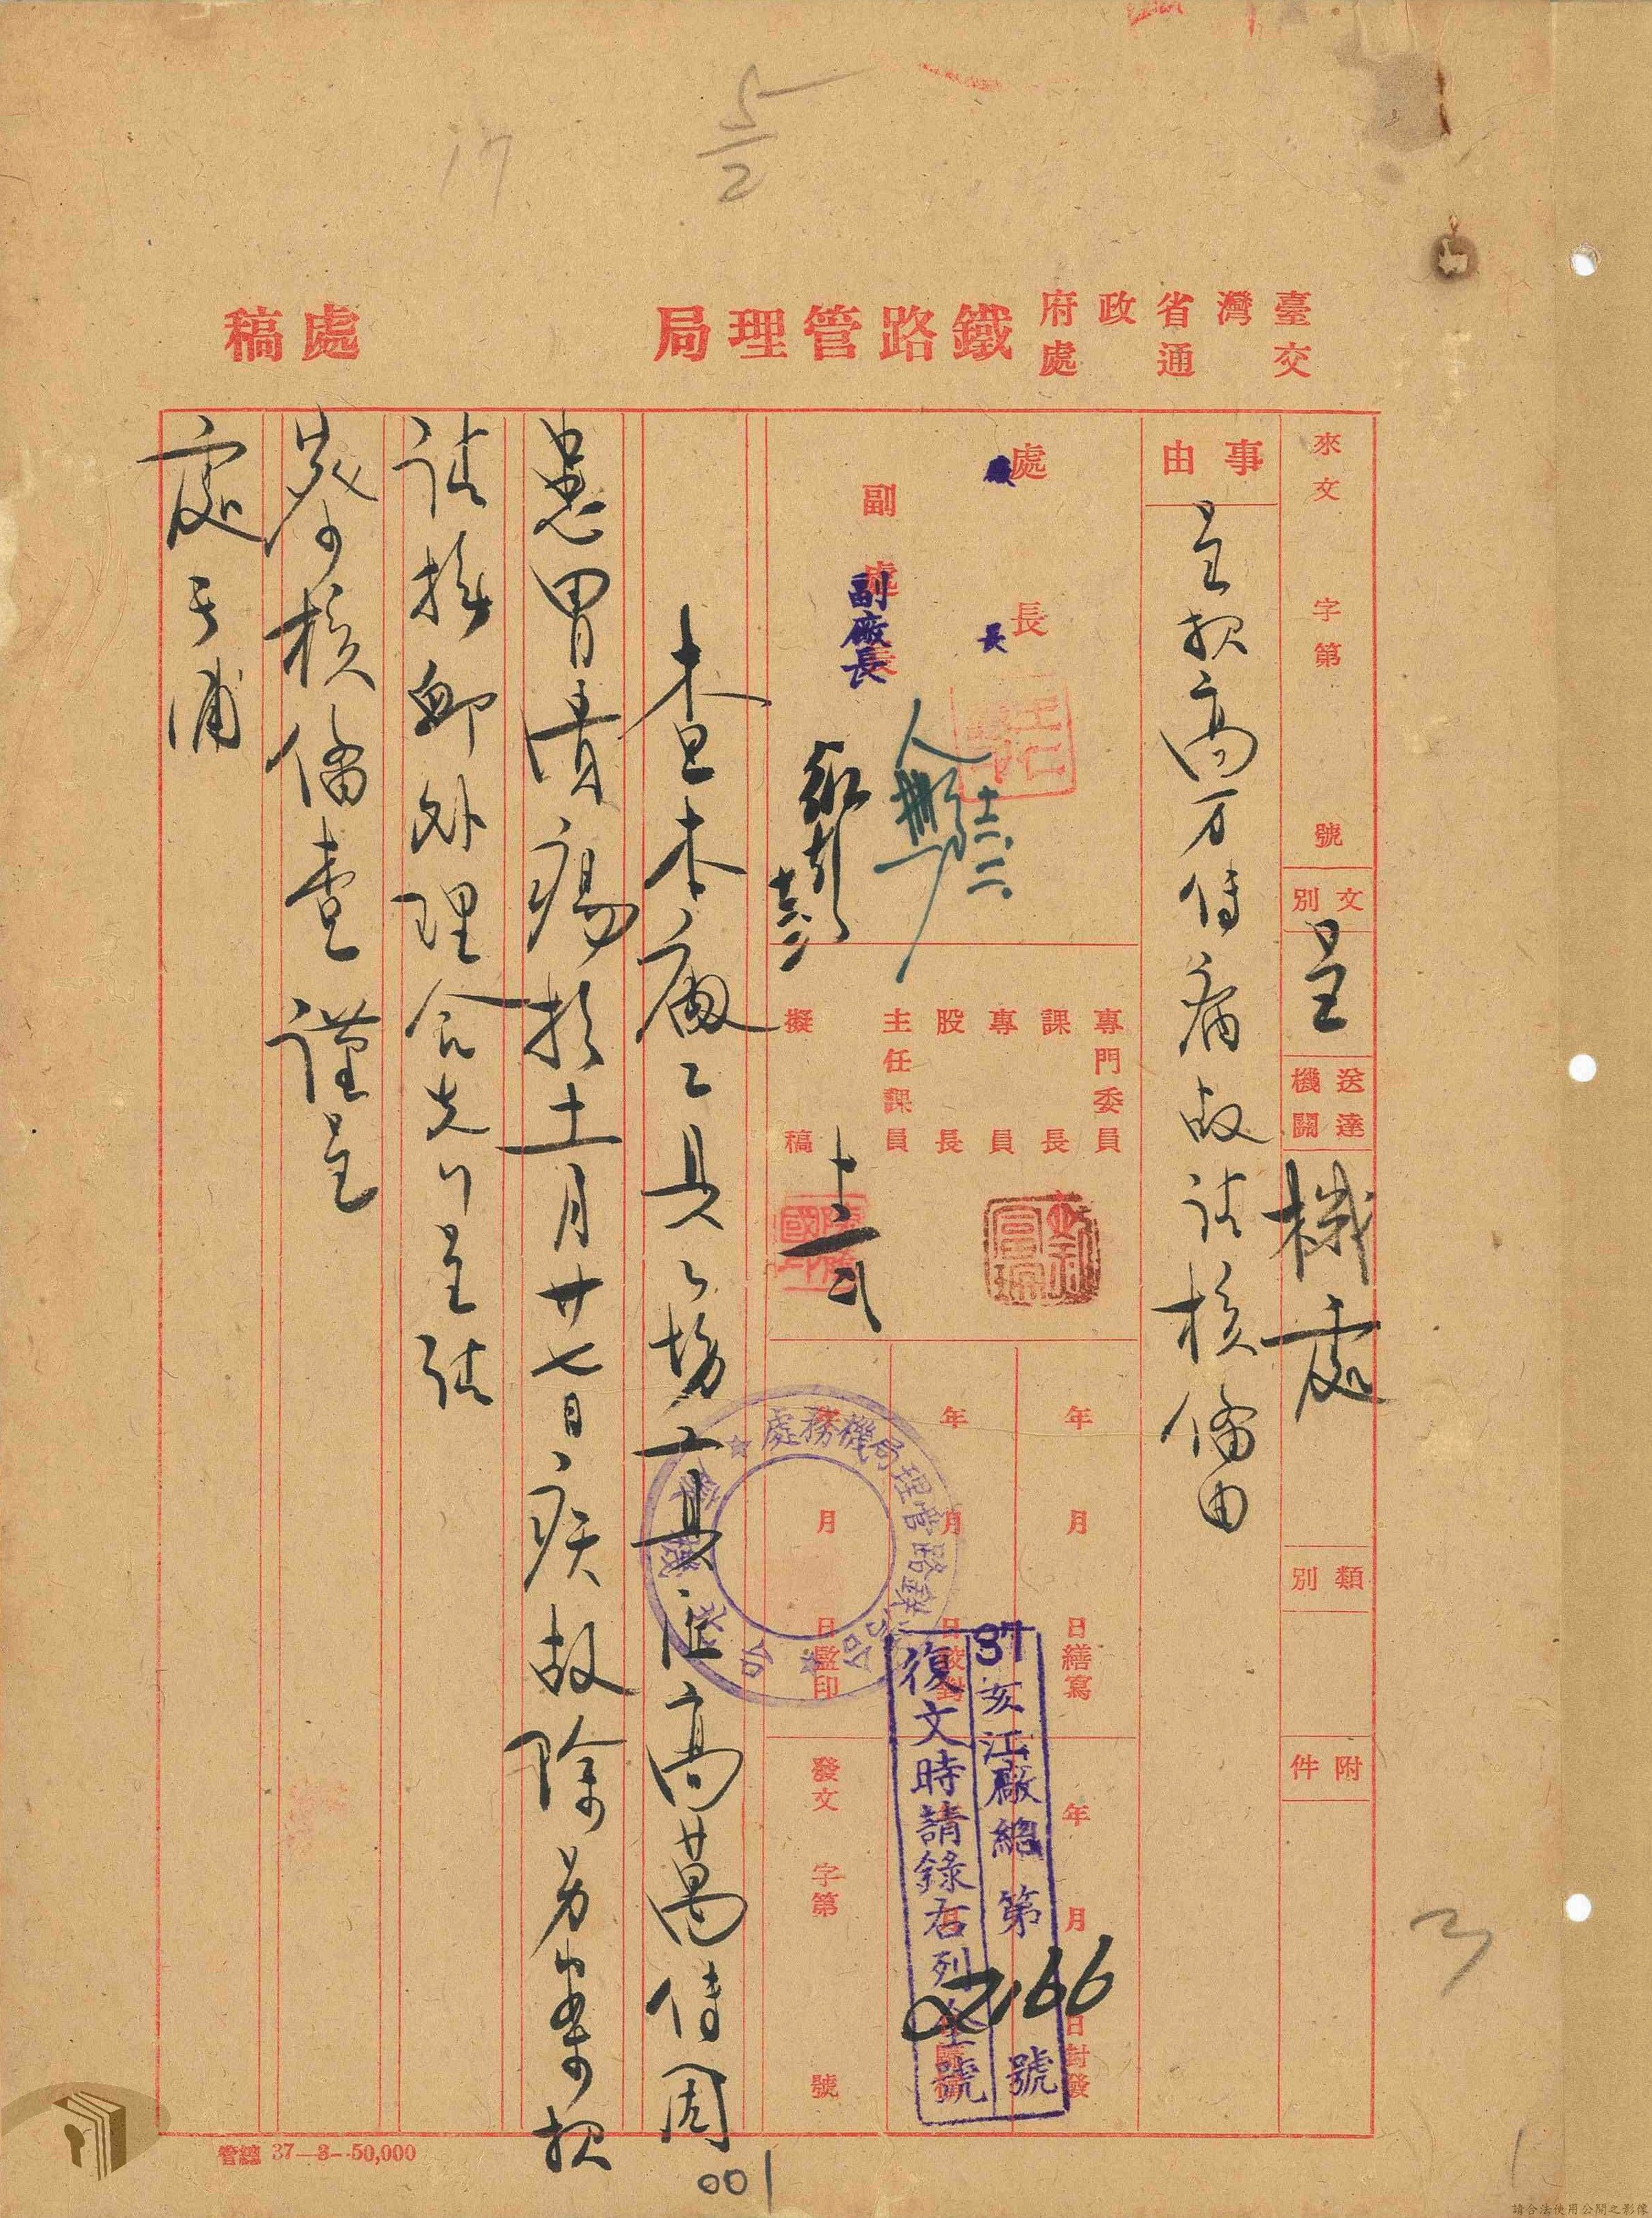 臺灣省政府
交通處
鐵路管理局
處稿
來文 字第 號
文別 呈
送達機關 機處
類別
附件
事由
呈報高万傳病故請核備由
處長
廠長
副處長
副廠長
十二.二.
專門委員
課長
專員
股長
主任課員
擬稿
年 月 日繕寫
年 月 日校對
年 月 日監印
年 月 日封發
發文 字第 號
37亥江廠總第02166號
復文時請錄右列全號
查本廠工具工場工具匠高萬傳因
患胃潰瘍於十一月廿七日疾故除另案報
請撫卹外理合先行呈請
鑒核備查 謹呈
處長浦
管總 37—3—50,000
001
17
5/2
3
請合法使用公開之影像